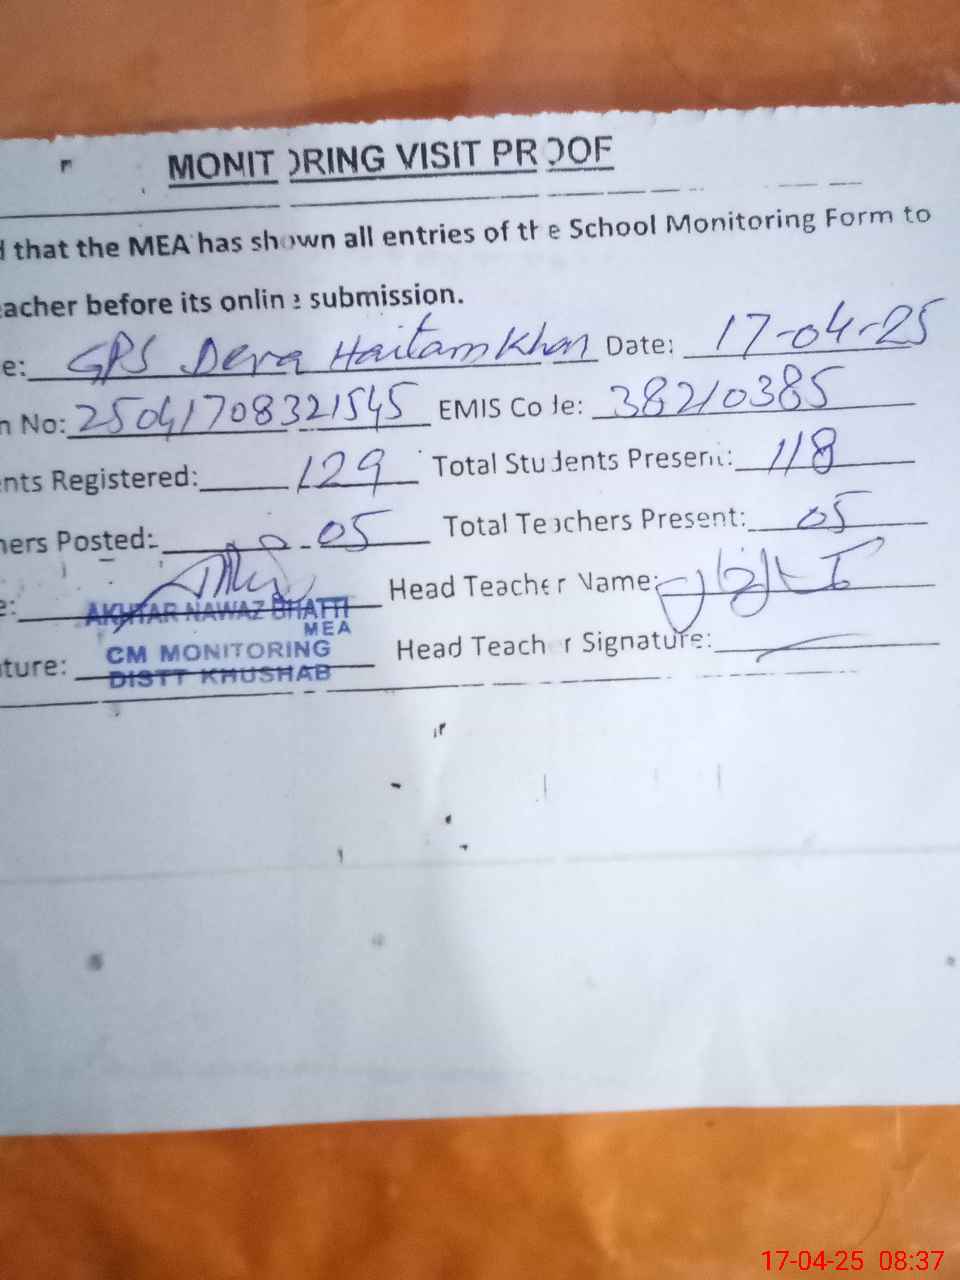 MONITORING VISIT PROOF
d that the MEA has shown all entries of the School Monitoring Form to
eacher before its online submission.
e: GPS Dera Haitam Khan Date: 17-04-25
n No: 25041708321545 EMIS Code: 38210385
nts Registered: 129 Total Students Present: 118
hers Posted: 05 Total Teachers Present: 05
e: AKHTAR NAWAZ BHATTI Head Teacher Name:
MEA
ture: CM MONITORING Head Teacher Signature:
DISTT KHUSHAB
17-04-25 08:37